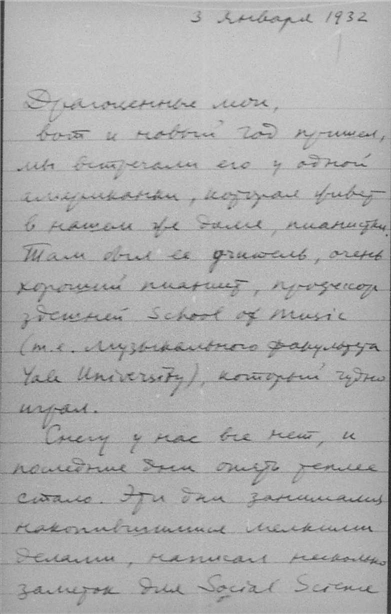 3 января 1932
Драгоценные мои,
вот и новый год пришел,
мы встречали его у одной
американки, которая живет
в нашем же доме, пианистки.
Там был ее учитель, очень
хороший пианист, профессор
здешней School of Music
(т.е. Музыкального факультета
Yale University), который чудно
играл.
Снегу у нас все нет, и
последние дни опять теплее
стало. Эти дни занимался
накопившимися мелкими
делами, написал несколько
заметок для Social Science